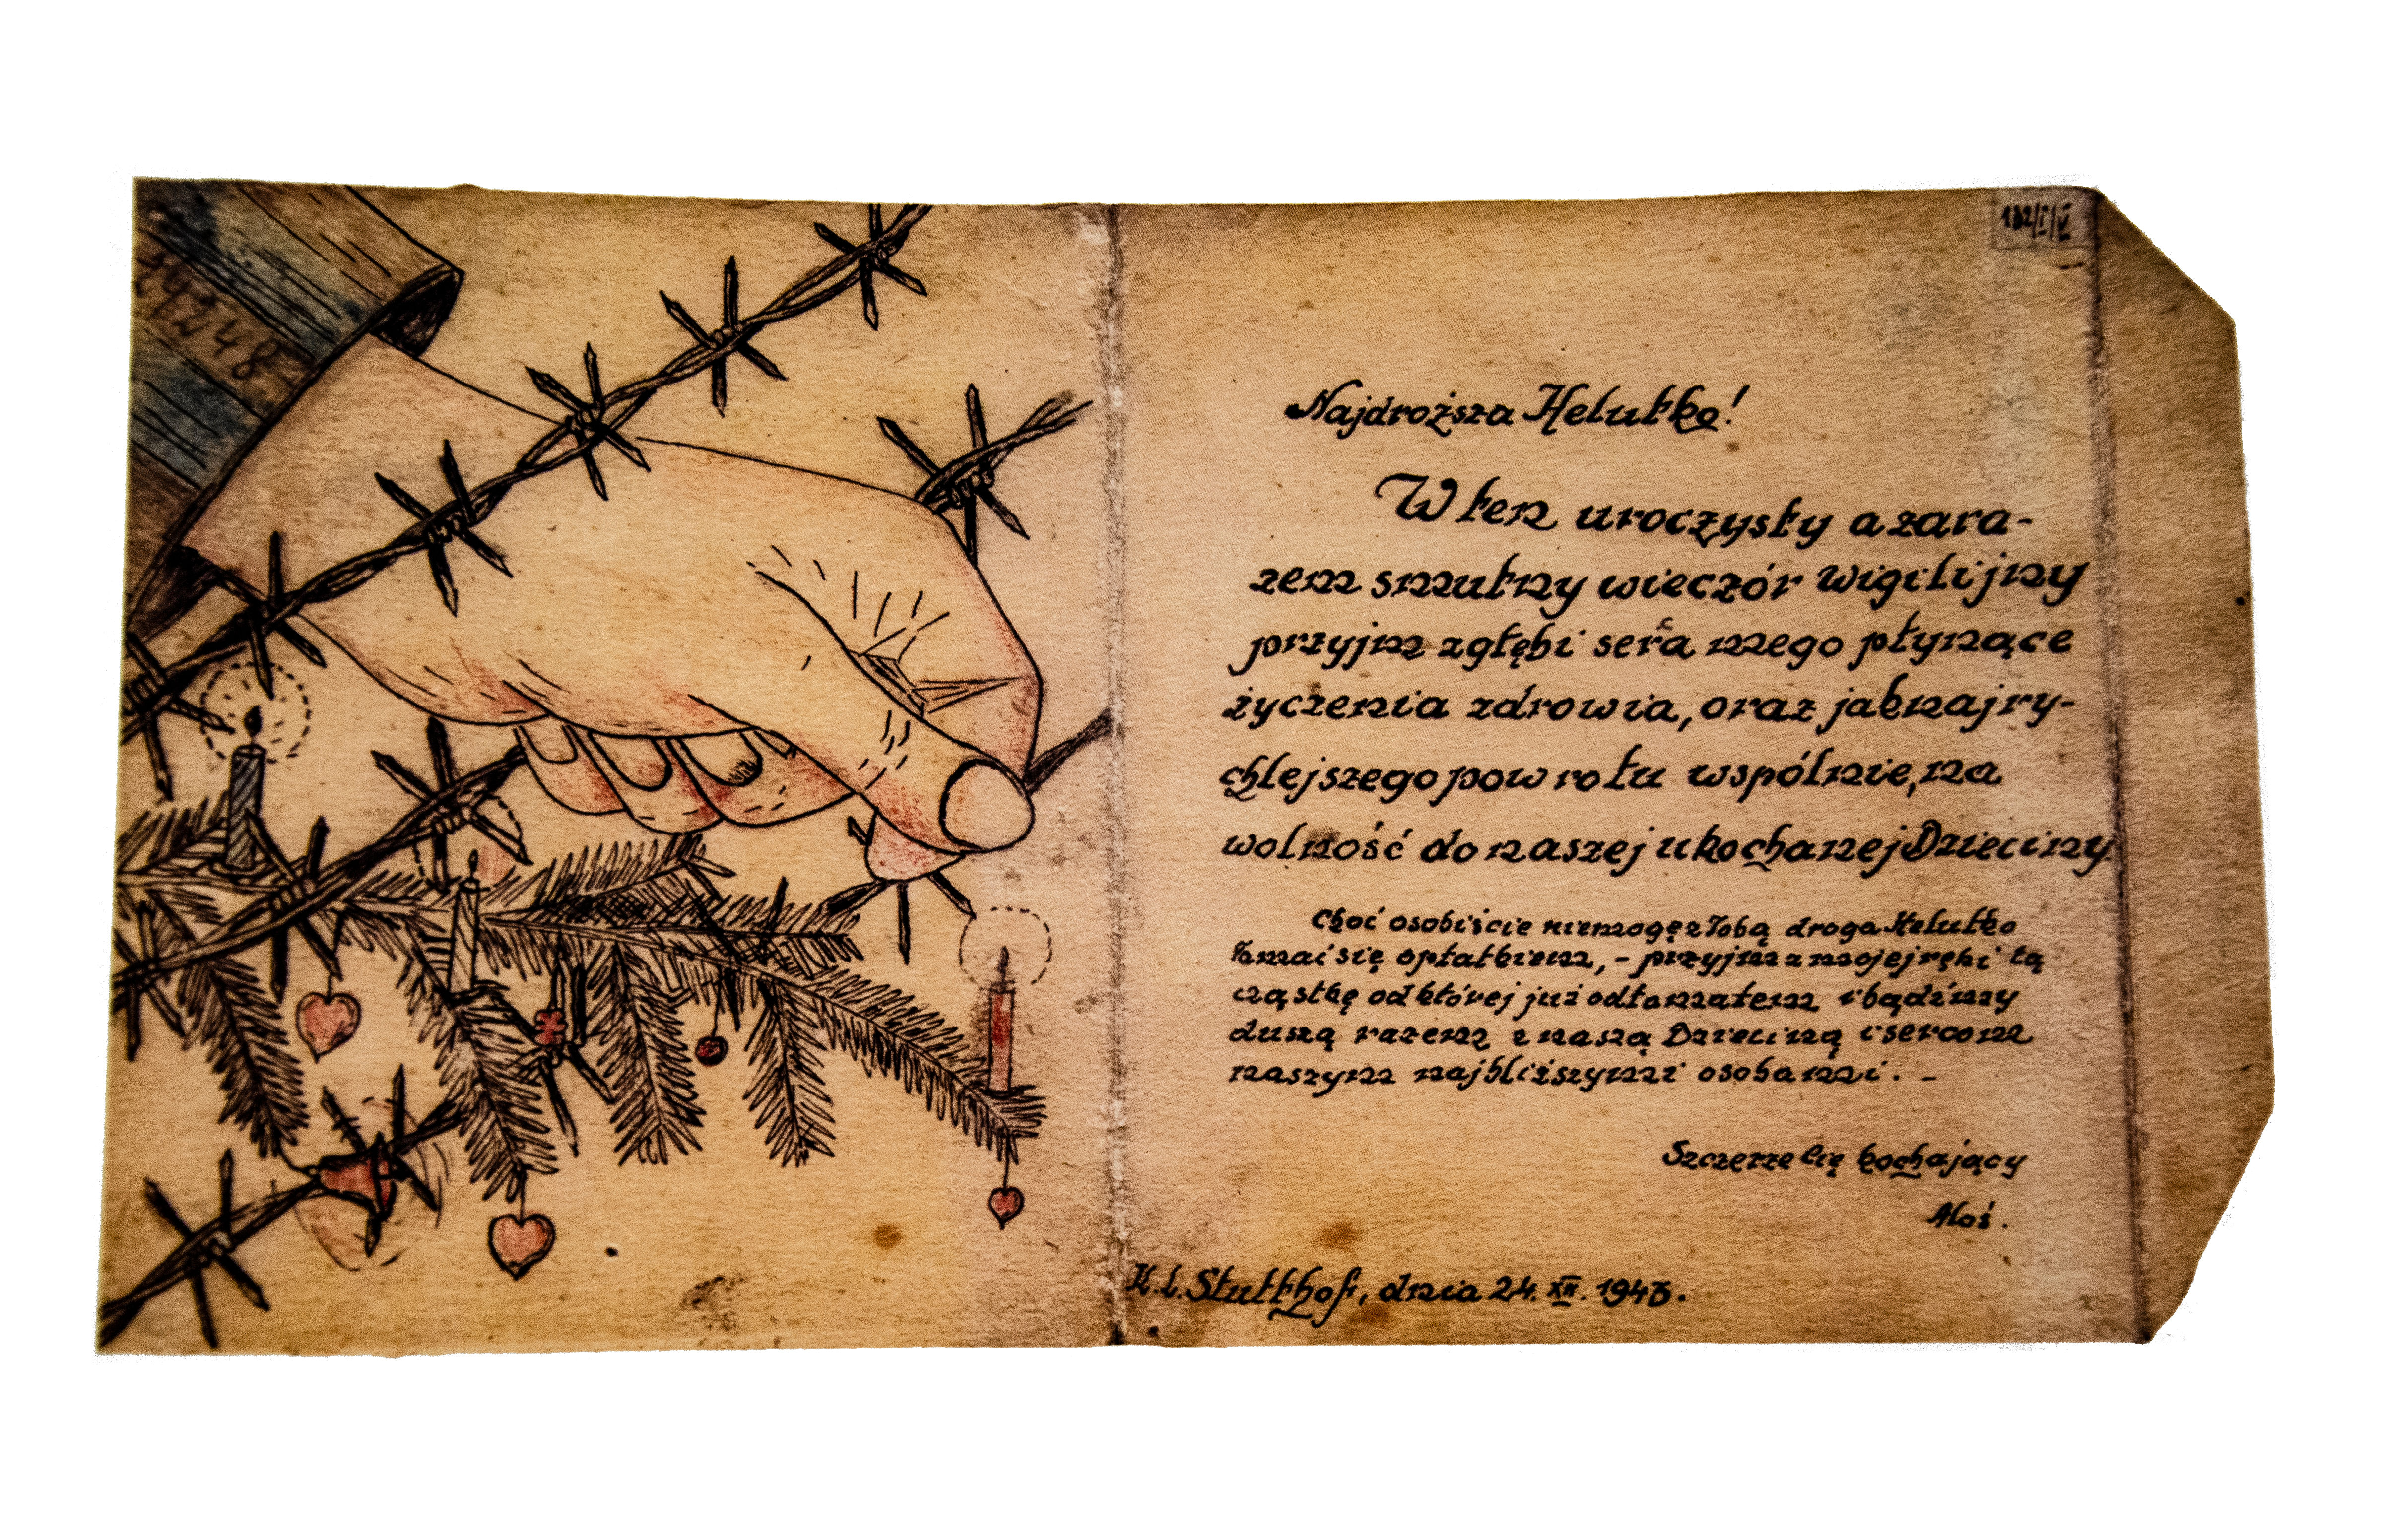 24248
Najdroższa Helutko!
W ten uroczysty a zara-
zem smutny wieczór wigilijny
przyjm z głębi serca mego płynące
życzenia zdrowia, oraz jaknajry-
chlejszego powrotu wspólnie, na
wolność do naszej ukochanej Dzieciny
Choć osobiście niemogę z Tobą droga Helutko
łamać się opłatkiem, - przyjm z mojej ręki tą
cząstkę od której już odłamałem i bądźmy
duszą razem z naszą Dzieciną i sercom
naszym najbliższymi osobami. -
Szczerze Cię kochający
Aloś.
K.L. Stutthof, dnia 24. XII. 1943.